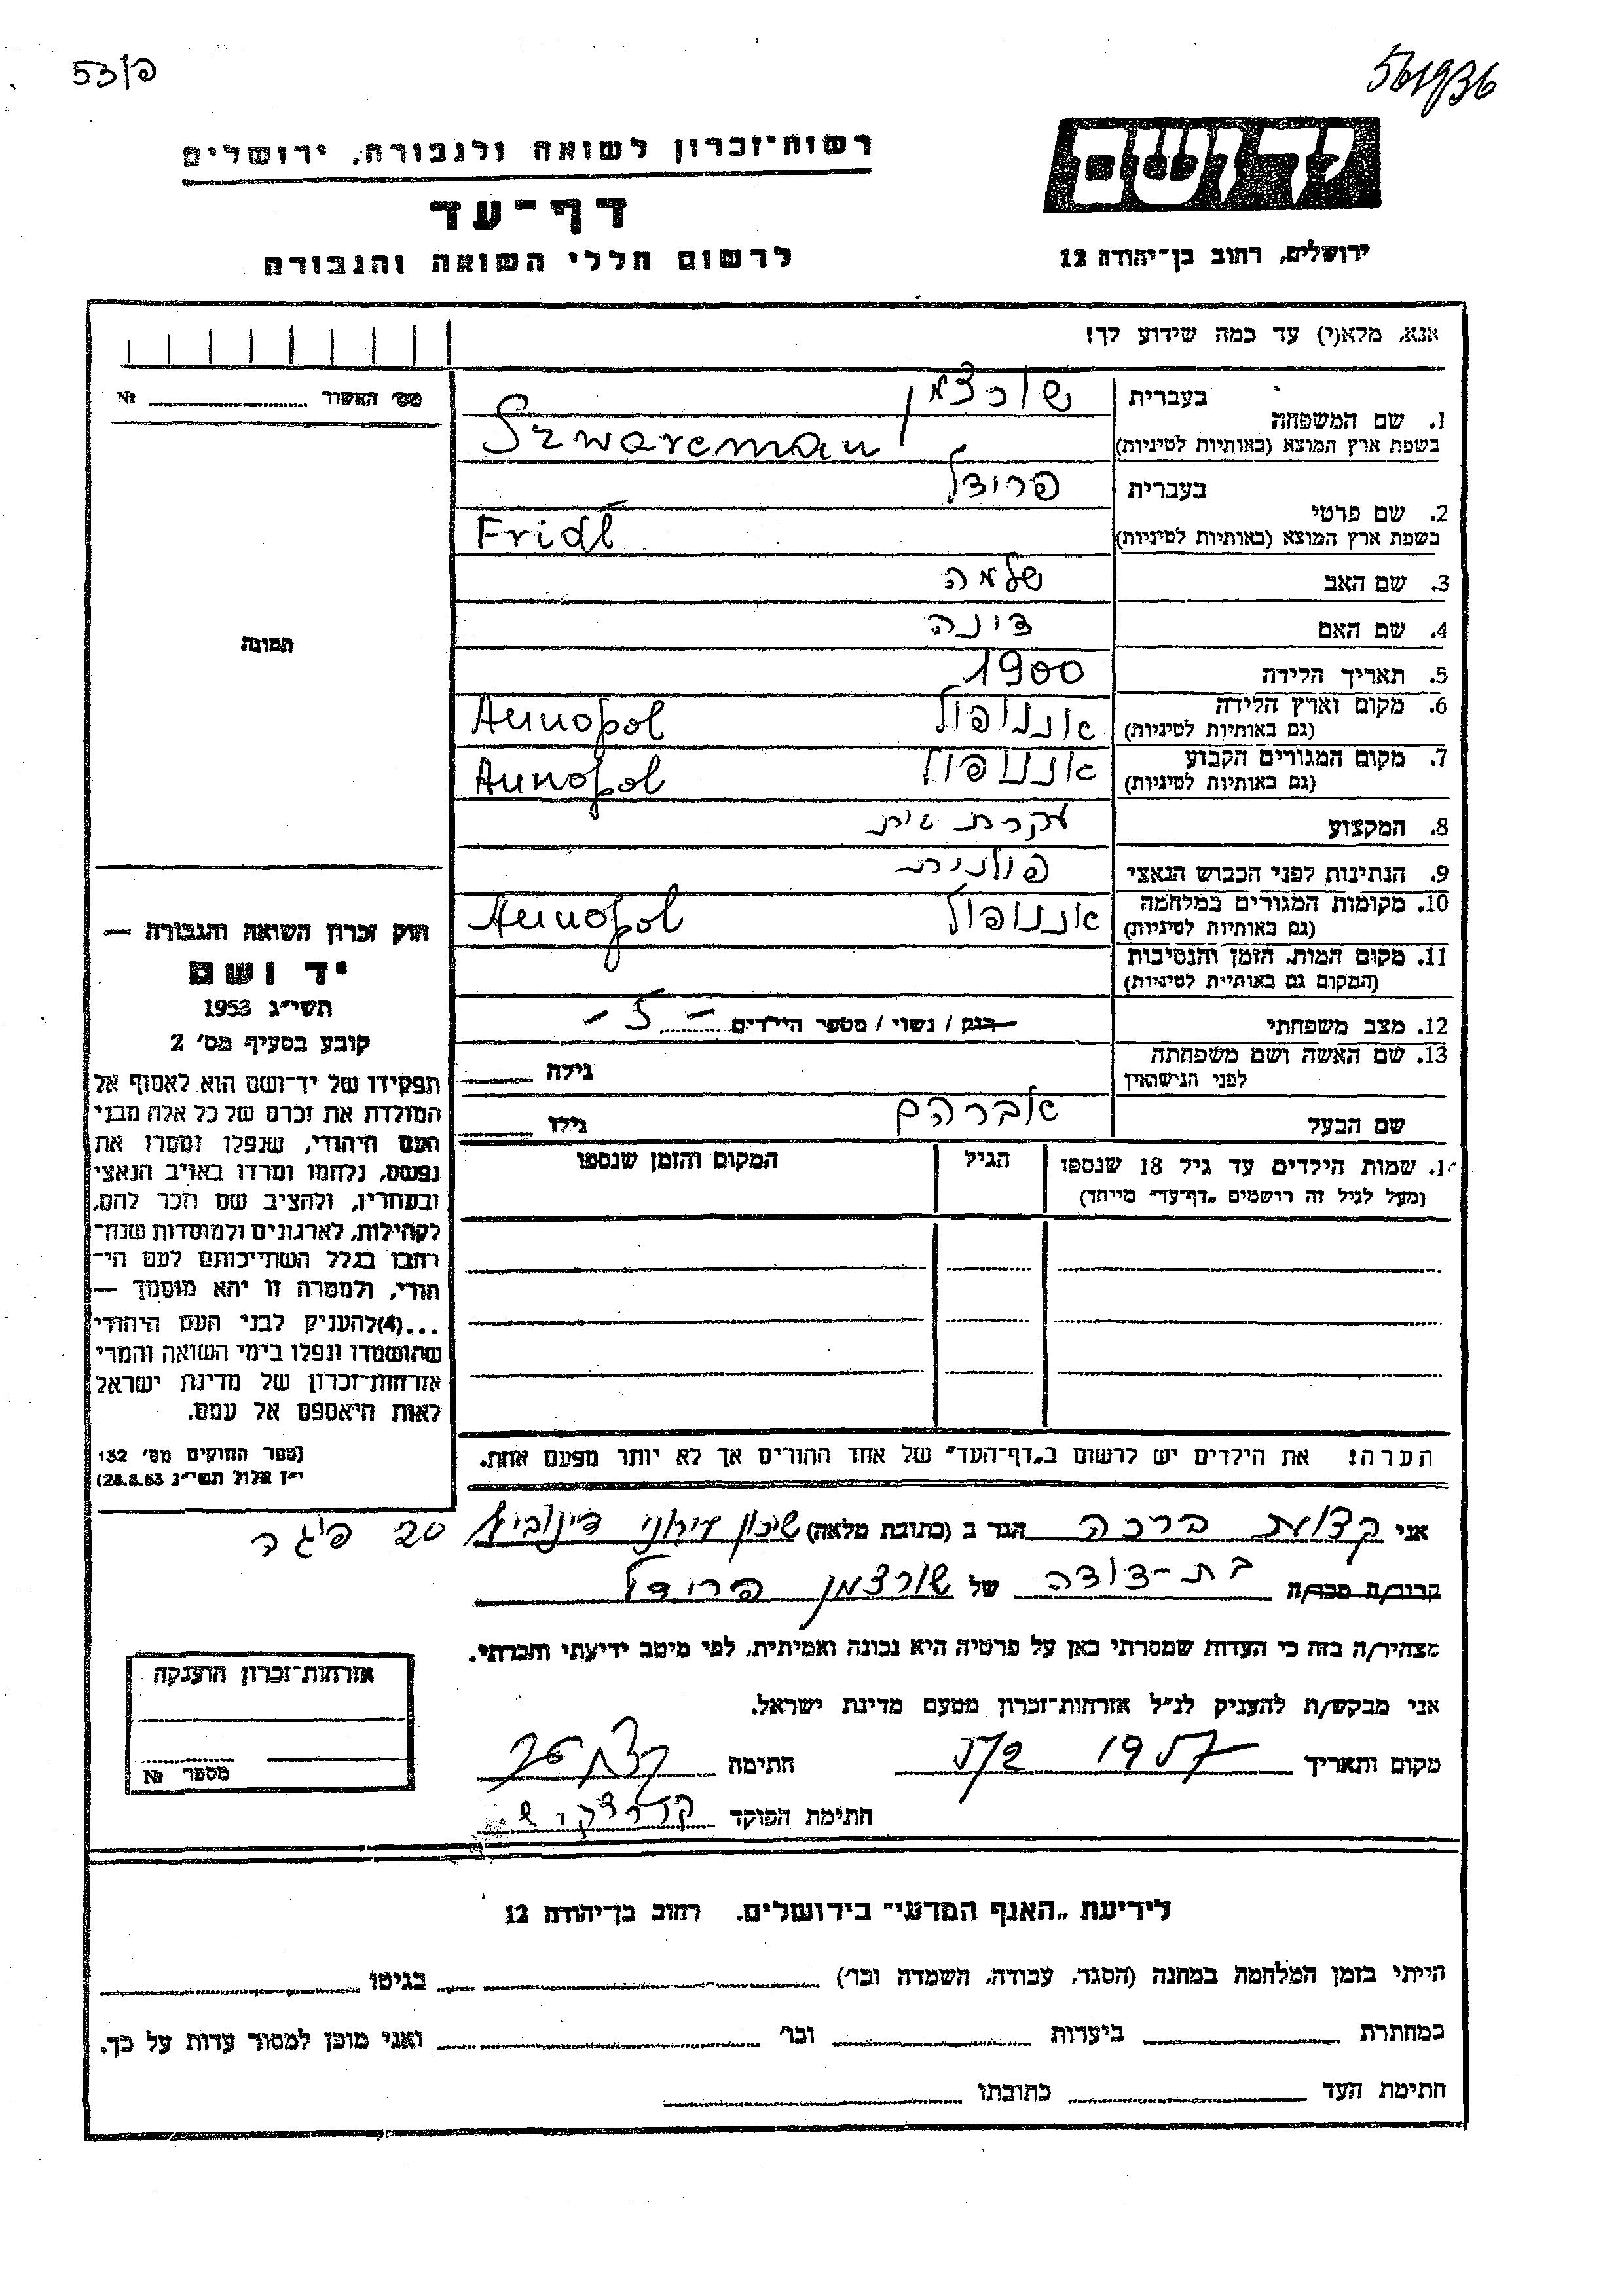 53/פ
561936
רשות־זכרון לשואה ולגבורה, ירושלים
יד ושם
דף־עד
לרשום חללי השואה והגבורה
ירושלים, רחוב בן־יהודה 12
אנא, מלא(י) עד כמה שידוע לך!
מס׳ האשור № ________
1. שם המשפחה
בעברית שורצמן
בשפת ארץ המוצא (באותיות לטיניות) Szwarcman
2. שם פרטי
בעברית פרידל
בשפת ארץ המוצא (באותיות לטיניות) Fridl
3. שם האב שלמה
4. שם האם דינה
תמונה
5. תאריך הלידה 1900
6. מקום וארץ הלידה אננופול Annopol
(גם באותיות לטיניות)
7. מקום המגורים הקבוע אננופול Annopol
(גם באותיות לטיניות)
8. המקצוע עקרת בית
9. הנתינות לפני הכבוש הנאצי פולנית
10. מקומות המגורים במלחמה אננופול Annopol
(גם באותיות לטיניות)
11. מקום המות, הזמן והנסיבות
(המקום גם באותיות לטיניות)
12. מצב משפחתי רווק / נשוי / מספר הילדים - 5 -
13. שם האשה ושם משפחתה
לפני הנישואין
גילה
שם הבעל אברהם גילו
1. שמות הילדים עד גיל 18 שנספו
(מעל לגיל זה רושמים „דף־עד״ מייחד)
הגיל
המקום והזמן שנספו
הערה! את הילדים יש לרשום ב„דף־העד״ של אחד ההורים אך לא יותר מפעם אחת.
חוק זכרון השואה והגבורה —
יד ושם
תשי״ג 1953
קובע בסעיף מס׳ 2
תפקידו של יד־ושם הוא לאסוף אל
המולדת את זכרם של כל אלה מבני
העם היהודי, שנפלו ומסרו את
נפשם, נלחמו ומרדו באויב הנאצי
ובעוזריו, ולהציב שם וזכר להם,
לקהילות, לארגונים ולמוסדות שנח־
רבו בגלל השתייכותם לעם הי־
הודי, ולמטרה זו יהא מוסמך —
...(4)להעניק לבני העם היהודי
שהושמדו ונפלו בימי השואה והמרי
אזרחות־זכרון של מדינת ישראל
לאות היאספם אל עמם.
(ספר החוקים מס׳ 132
י״ז אלול תשי״ג 28.8.53)
אני ברכה הגר ב (כתובת מלאה) שיכון עירוני 20
קרוב/ה מכר/ה בת-דודה של שורצמן פרידל
מצהיר/ה בזה כי העדות שמסרתי כאן על פרטיה היא נכונה ואמיתית, לפי מיטב ידיעתי והכרתי.
אני מבקש/ת להעניק לנ״ל אזרחות־זכרון מטעם מדינת ישראל.
מקום ותאריך 1957 חתימה
חתימת הפוקד
אזרחות־זכרון הוענקה
מספר №
לידיעת „האגף המדעי״ בירושלים, רחוב בן־יהודה 12
הייתי בזמן המלחמה במחנה (הסגר, עבודה, השמדה וכו׳) בגיטו
במחתרת ביערות וכו׳ ואני מוכן למסור עדות על כך.
חתימת העד כתובתו